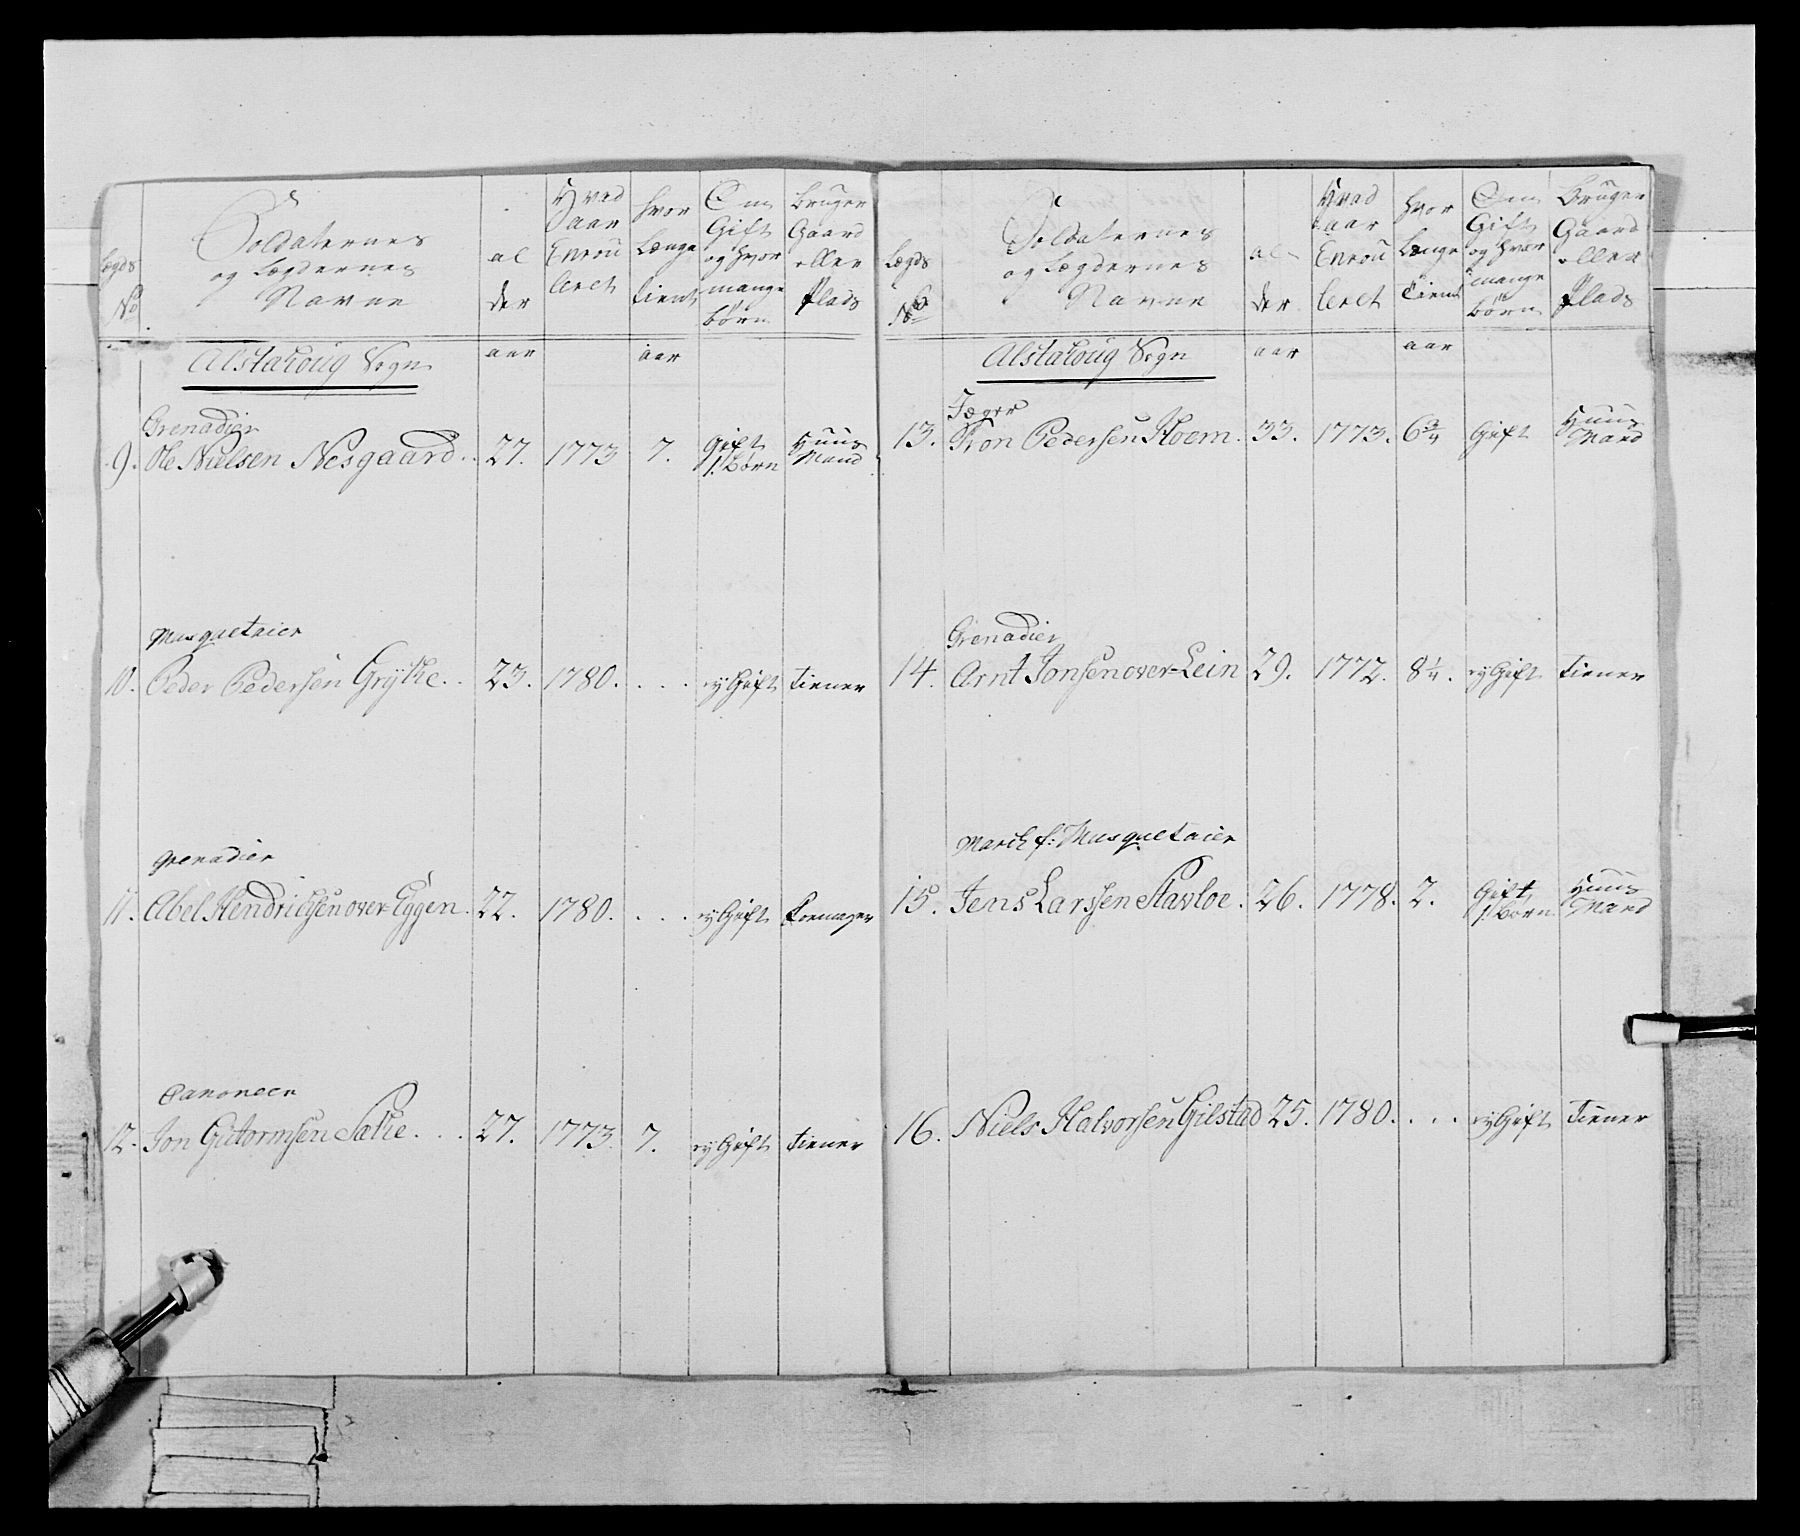 Lægds No
Soldaternes og Lægdernes Navne
al der
Hvad aar Enroulleret
hvor Længe tient
Om Gift og hvor mange børn
bruger Gaard eller Plads
Alstahoug Sogn
aar
aar
Grenadier
9. Ole Nielsen Nesgaard. 27. 1773 7. Gift 1. børn Huus Mand
Musquetaier
10. Peder Pedersen Grÿtte.. 23. 1780. . . . ej Gift tiener
Grenadier
11. Abel Hendrichsen over Eggen. 22. 1780. . . . ej Gift
Canoneer
12. Jon Guttormsen Salie. . . 27. 1773. 7. ej Gift tiener
Lægds No
Soldaternes og Lægdernes Navne
al der
Hvad aar Enroulleret
hvor Længe tient
Om Gift og hvor mange børn
bruger Gaard eller Plads
Alstahoug Sogn
aar
aar
Jæger
13. Pedersen Moom. 33. 1773. 6 3/4 Gift Huus Mand
Grenadier
14. Arnt Jonsen over-Lein 29. 1772. 8 1/4. ej Gift tiener
March f: Musquetaier
15. Jens Larssen Stavloe. 26. 1778. 2. Gift 1. børn Huus Mand
16. Niels Halvorsen Gilstad 25. 1780. . . . ej Gift tiener